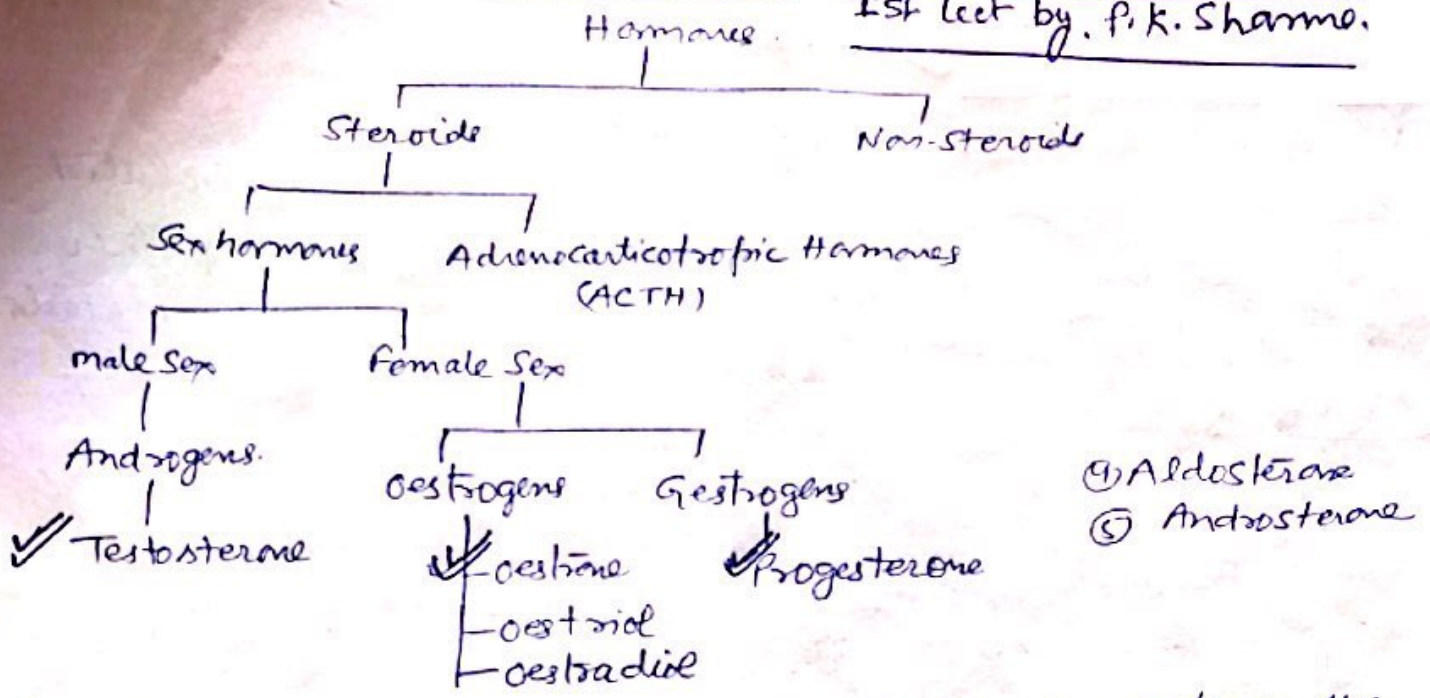 1st lect by. P.K. Sharma.
Hormones.
Steroids
Non-Steroids
Sex hormones
Adrenocorticotropic Hormones
(ACTH)
male Sex
Female Sex
Androgens.
Oestrogens
Gestrogens
Testosterone
oestrone
Progesterone
oestriol
oestradiol
④ Aldosterone
⑤ Androsterone